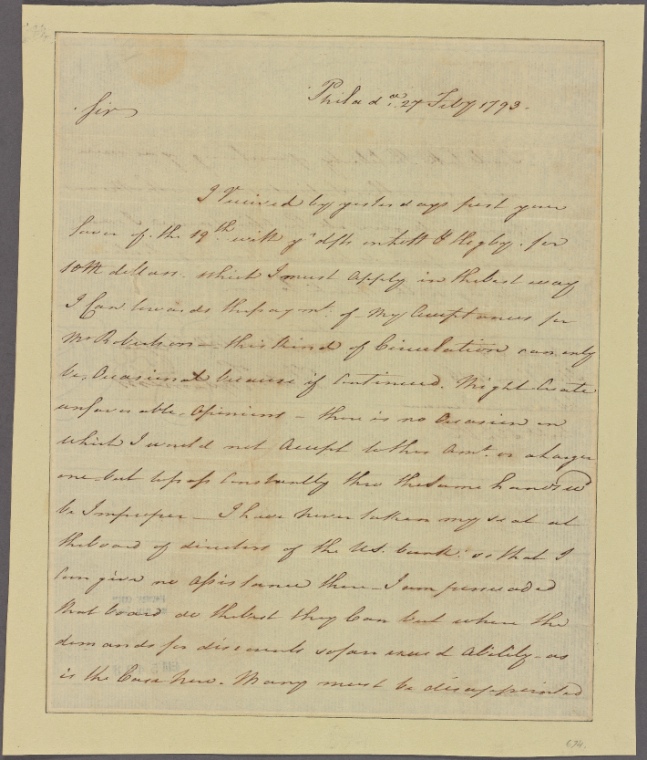 Philada. 27 Feby 1793.
Sir
I Received by yesterdays post your
favor of the 19th with yr dfts on
for
10M dollars. which I must apply in the best way
I Can towards the paymt. of My Acceptances for
Mr Robertson – this kind of Circulation can only
be Occasional because if Continued. Might Create
unfavorable Opinions – there is no Occasion on
which I would not Accept to this Amt. or a larger
one but to pass Constantly thro the same hands wd
be Improper – I have never taken my seat at
the board of directors of the US. bank. so that I
Can give no Assistance there – I am persuaded
that board do the best they Can but when the
demands for discounts so far exceed Ability – as
is the Case here. Many must be disappointed
674.